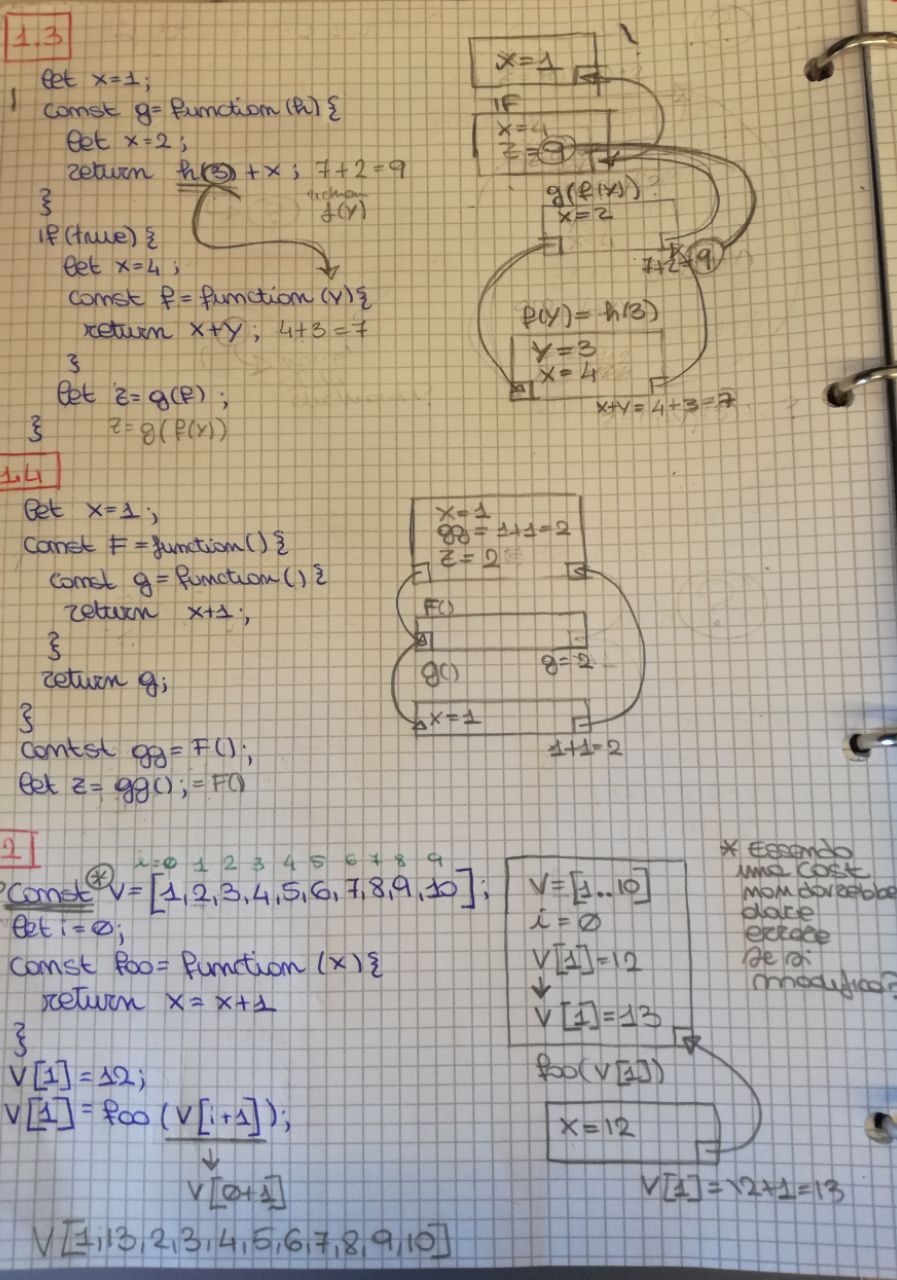 1.3
let x=1;
const g= function (h) {
let x=2;
return h(3) + x; 7+2=9
f(y)
}
if (true) {
let x=4;
const f= function (y) {
return x+y; 4+3=7
}
let z= g(f);
} z= g(f(x))
x=1
IF
x=4
z=9
g(f(x))?
x=2
7+2=9
f(y)= h(3)
y=3
x=4
x+y=4+3=7
1.4
let x=1;
const F = function () {
const g= function () {
return x+1;
}
return g;
}
contst gg= F();
let z= gg(); = F()
x=1
gg= 1+1=2
z=2
F()
g=2
g()
x=1
1+1=2
2
i=0 1 2 3 4 5 6 7 8 9
const * V= [1,2,3,4,5,6,7,8,9,10];
let i=0;
const foo= function (x) {
return x= x+1
}
V[1]=12;
V[1]= foo (V[i+1]);
↓
V[0+1]
V[1,13,2,3,4,5,6,7,8,9,10]
V=[1..10]
i=0
V[1]=12
↓
V[1]=13
foo(V[1])
x=12
V[1]=12+1=13
* Essendo
una cost
non dovrebbe
dare
errore
se si
modifica?